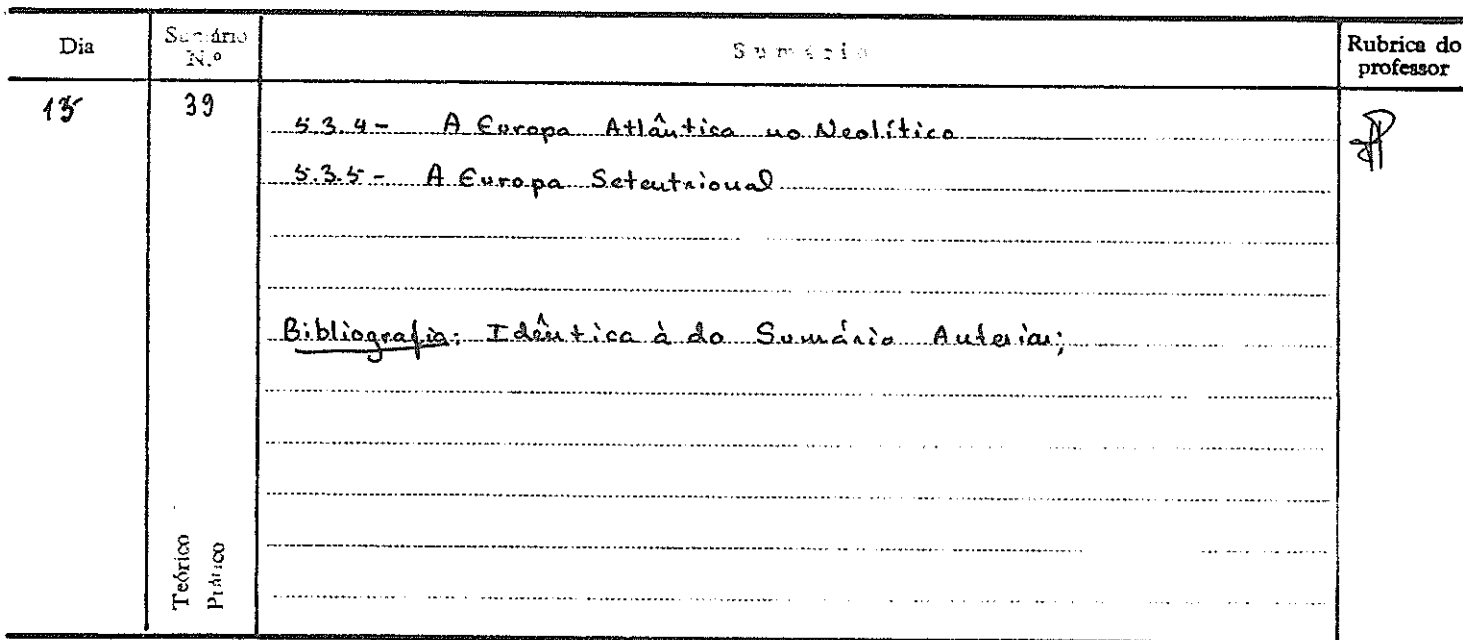 Dia
Sumário N.º
Sumário
Rubrica do professor
15
39
5.3.4- A Europa Atlântica no Neolítico
5.3.5- A Europa Setentrional
Bibliografia: Idêntica à do Sumário Anterior;
Teórico
Prático